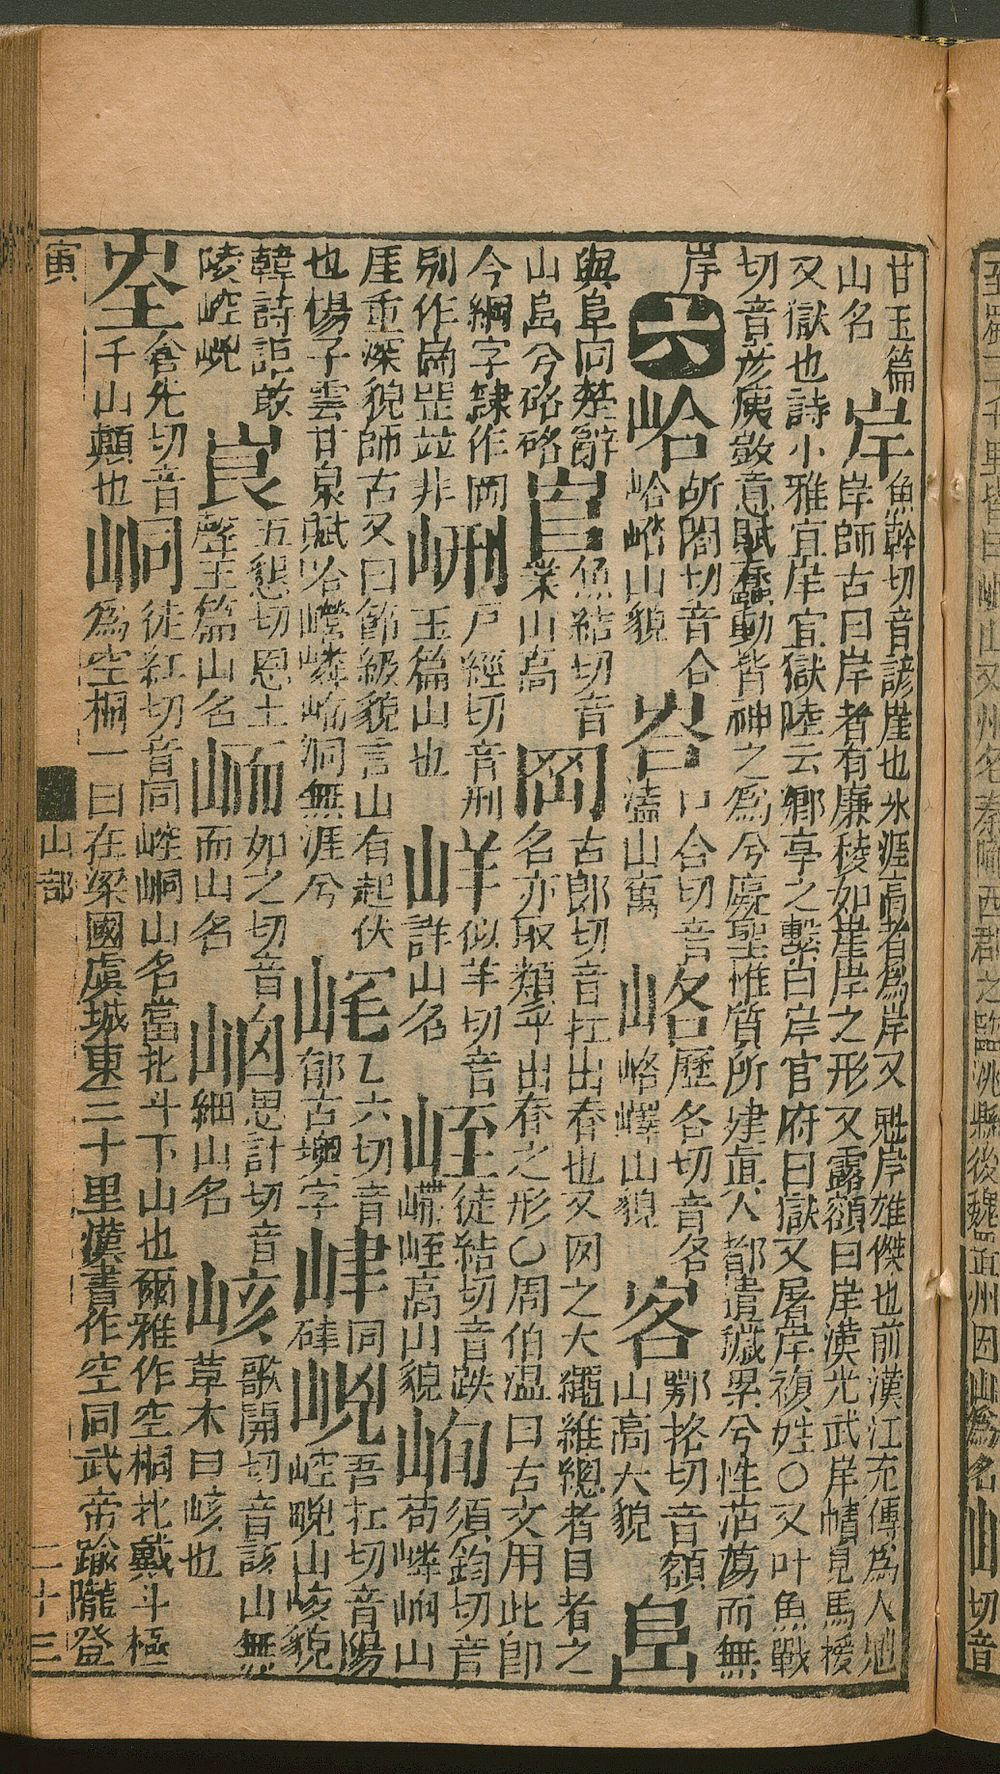 甘玉篇
山名
岸
魚幹切音諺崖也水涯高者爲岸又魁岸雄傑也前漢江充傳爲人魁
岸師古曰岸者有廉棱如崖岸之形又露額曰岸漢光武岸幘見馬援
又獄也詩小雅宜岸宜獄陸云鄉亭之繫曰岸官府曰獄又屠岸複姓○又叶魚戰
切音彥庾敳意賦蠢動皆神之爲兮癡聖惟質所建眞人都遣穢累兮性茫蕩而無
岸
六
峆
斦閤切音合
峆㟷山貌
口合切音
溘山窟
峈
歷各切音各
峈嶧山貌
峉
鄂挌切音額
山高大貌
與阜同楚辭
山兮硌硌
魚結切音
業山高
古郎切音扛出春也又网之大繩維總者目者之
名亦取類于出春之形○周伯溫曰古文用此卽
今綱字隸作岡
別作崗罡並非
戸經切音刑
玉篇山也
似羊切音
詳山名
峌
徒結切音跌
嵽峌高山貌
峋
須鈞切音
荀嶙峋山
厓重深貌師古又曰節級貌言山有起伏
也楊子雲甘泉賦岭巆嶙峋洞無涯兮
乙六切音
郁古墺字
峍
同
硉
吾扛切音
崆山峻貌
韓詩詎敢
陵崆
峎
五懇切恩上
聲玉篇山名
峏
如之切音
而山名
思計切音
細山名
峐
歌開切音該山無
草木曰峐也
峑
倉先切音
千山顚也
峒
徒紅切音同崆峒山名當北斗下山也爾雅作空桐北戴斗極
爲空桐一曰在梁國虞城東三十里漢書作空同武帝踰隴登
寅
山部
二十三